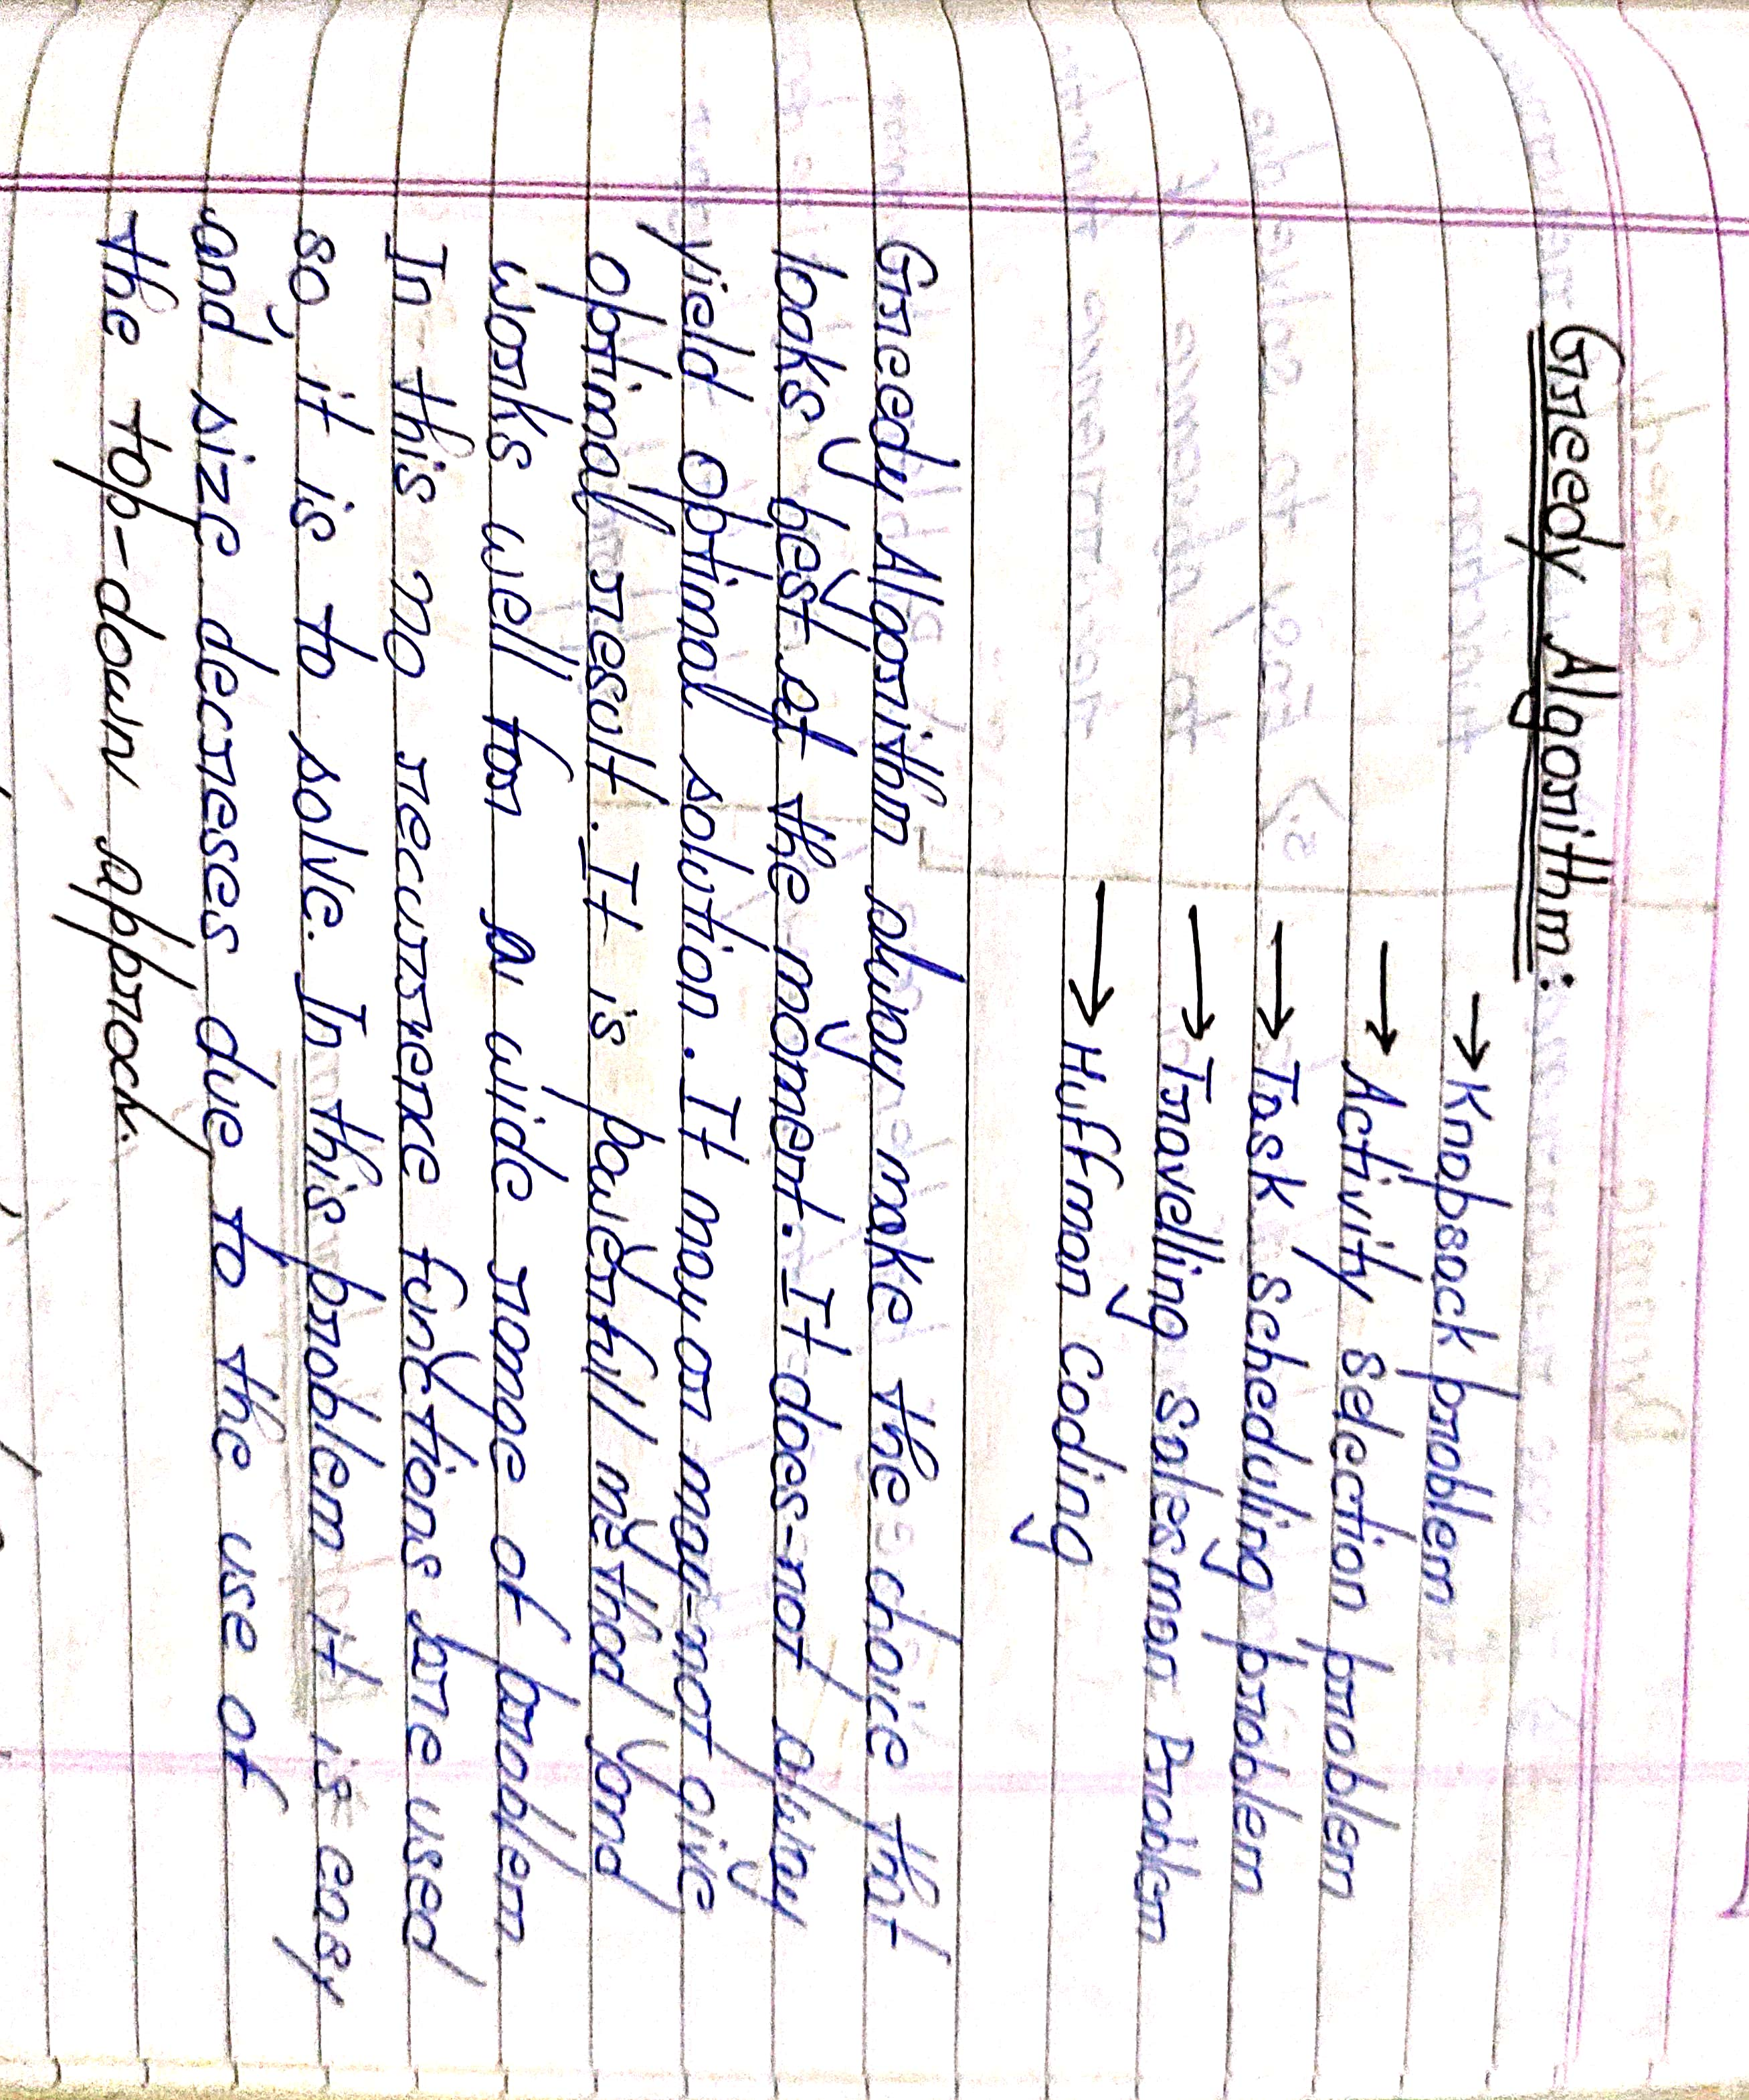 Greedy Algorithm:
→ Knapsack problem
→ Activity Selection problem
→ Task Scheduling problem
→ Travelling Salesman Problem
→ Huffman coding
Greedy Algorithm alway make the choice that
looks best at the moment. It does-not alway
yield optimal solution. It may or may-not give
optimal result. It is powerfull method and
works well for a wide range of problem
In this no recurrence functions are used
so it is to solve. In this problem it is easy
and size decreses due to the use of
the top-down approach.